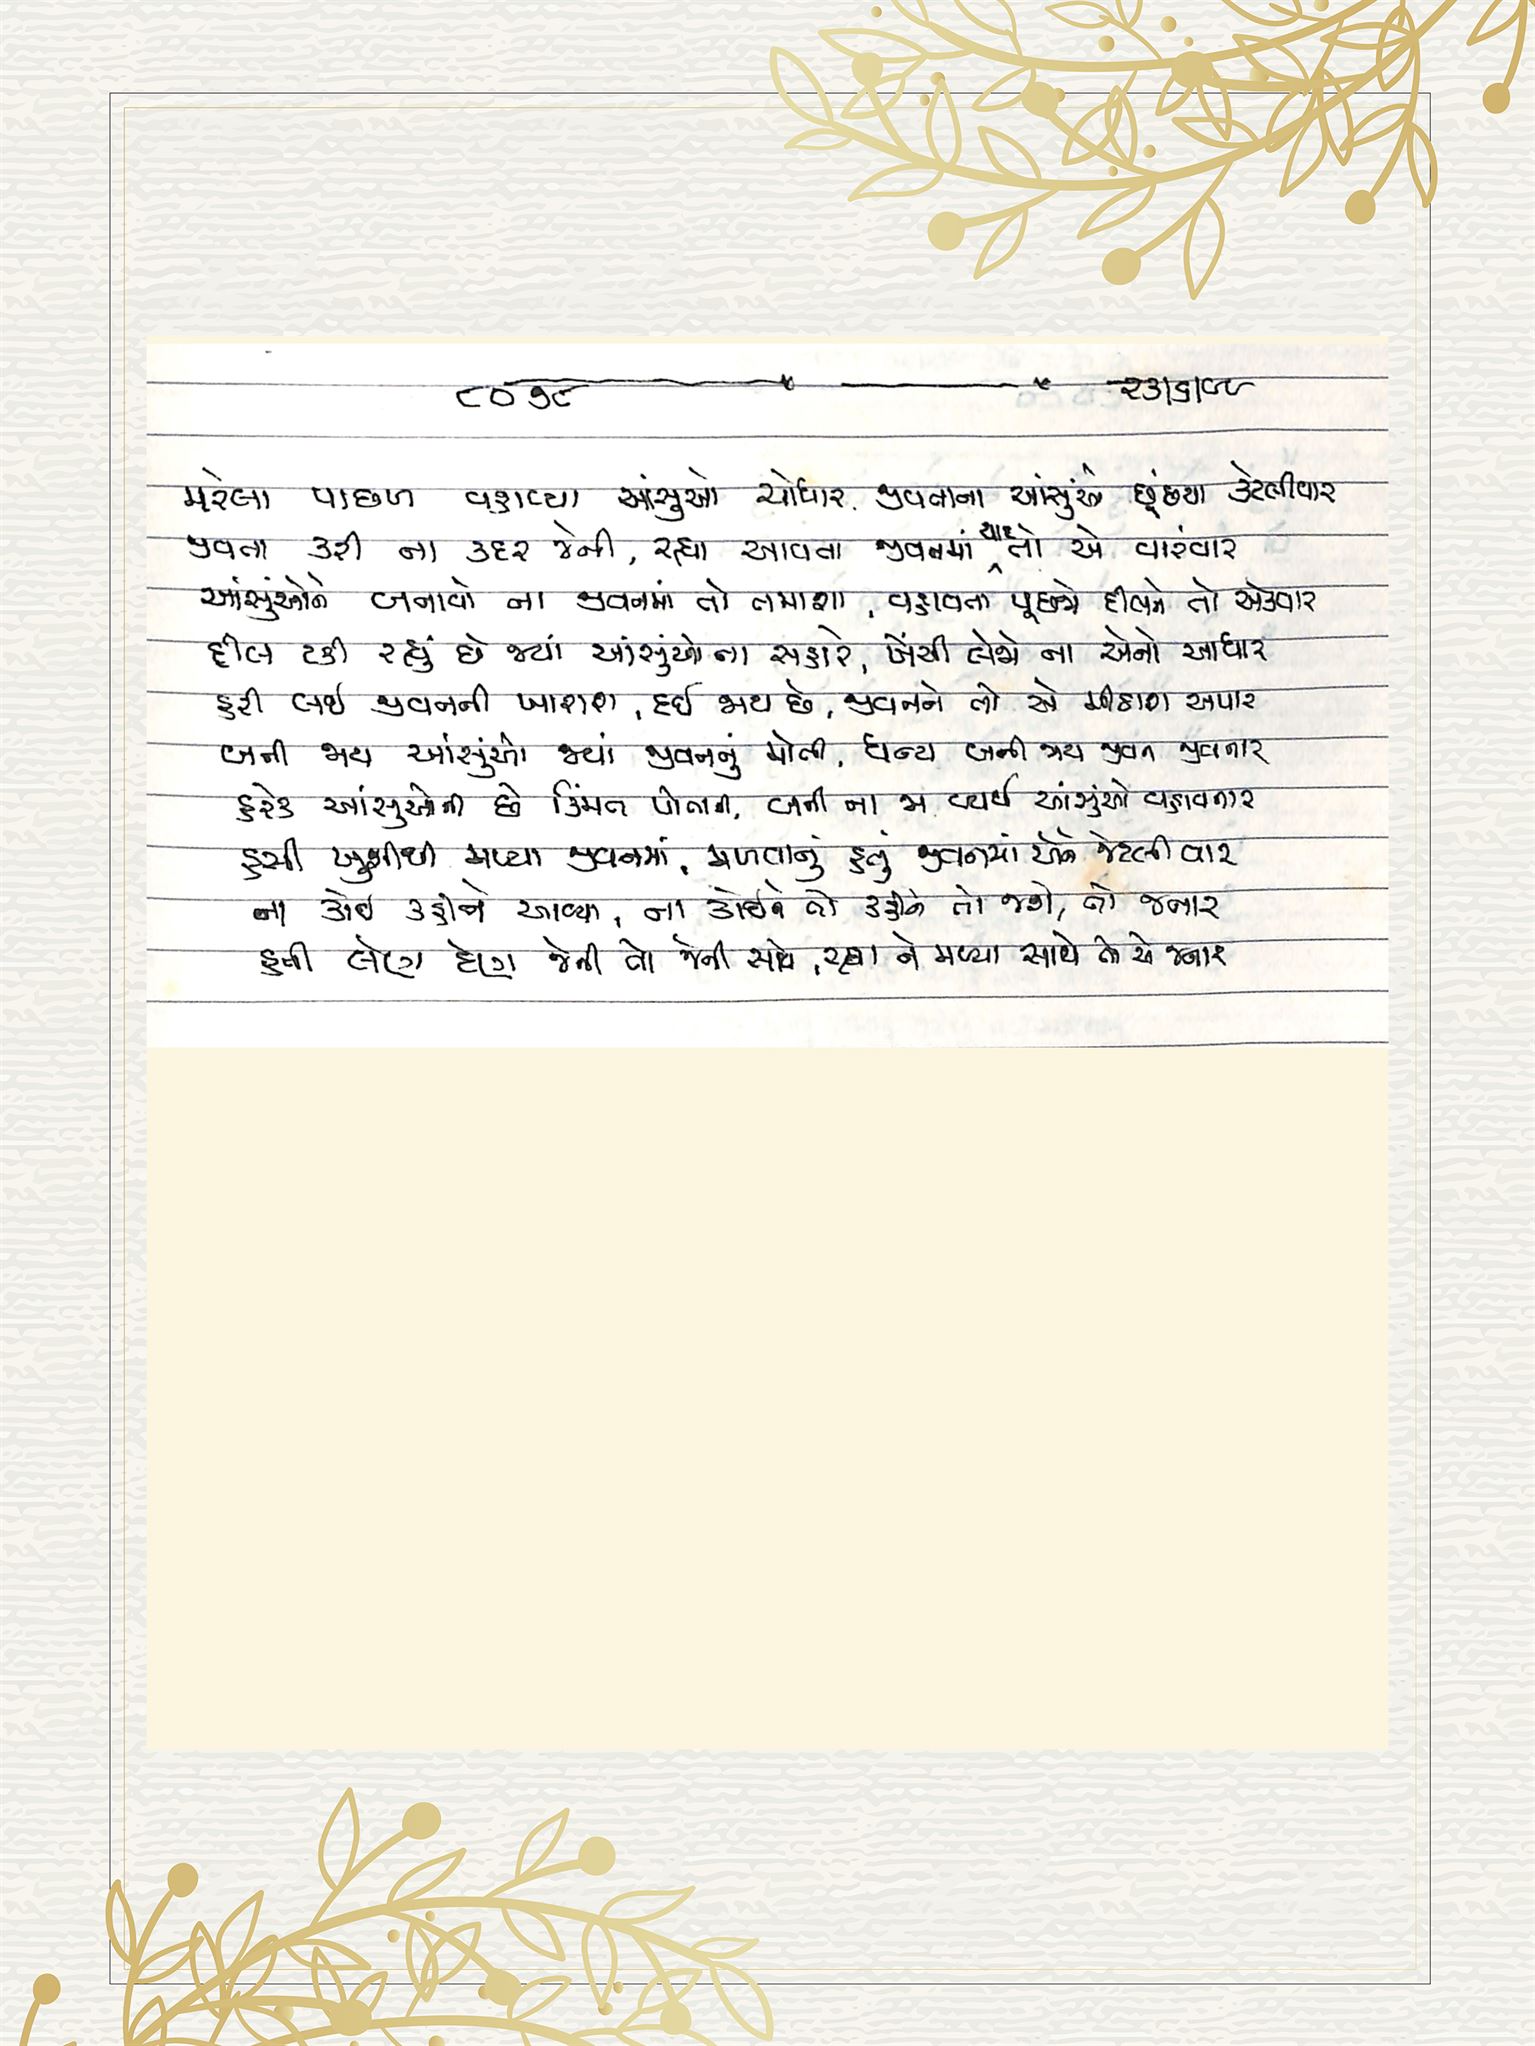 ૮૦૭૯ ૨૩।૬।૯૯
મરેલા પાછળ વહાવ્યા આંસુઓ ચોધાર. જીવતાના આંસુંઓ લૂંછયા કેટલીવાર
જીવતા કરી ના કદર જેની, રહ્યા આવતા જીવનમાં યાદ તો એ વારંવાર
આંસુંઓને બનાવો ના જીવનમાં તો તમાશા, વહાવતા પૂછજો દીલને તો એકવાર
દીલ ટકી રહ્યું છે જ્યાં આંસુંઓના સહારે, ખેંચી લેજો ના એનો આધાર
હરી લઈ જીવનની ખારાશ, દઈ જાય છે, જીવનને તો એ મીઠાશ અપાર
બની જાય આંસુંઓ જ્યાં જીવનનું મોતી, ધન્ય બની જાય જીવન જીવનાર
હરેક આંસુઓની છે કિંમત પોતાની, બની ના જા વ્યર્થ આંસુંઓ વહાવનાર
હસી ખુશીથી મળ્યા જીવનમાં, મળવાનું હતું જીવનમાં એને જેટલી વાર
ના કોઈ કહીને આવ્યા, ના કોઈને તો કહીને તો જશે, તો જનાર
હતી લેણ દેણ જેની તો જેની સાથે, રહ્યા ને મળ્યા સાથે તો એ જનાર